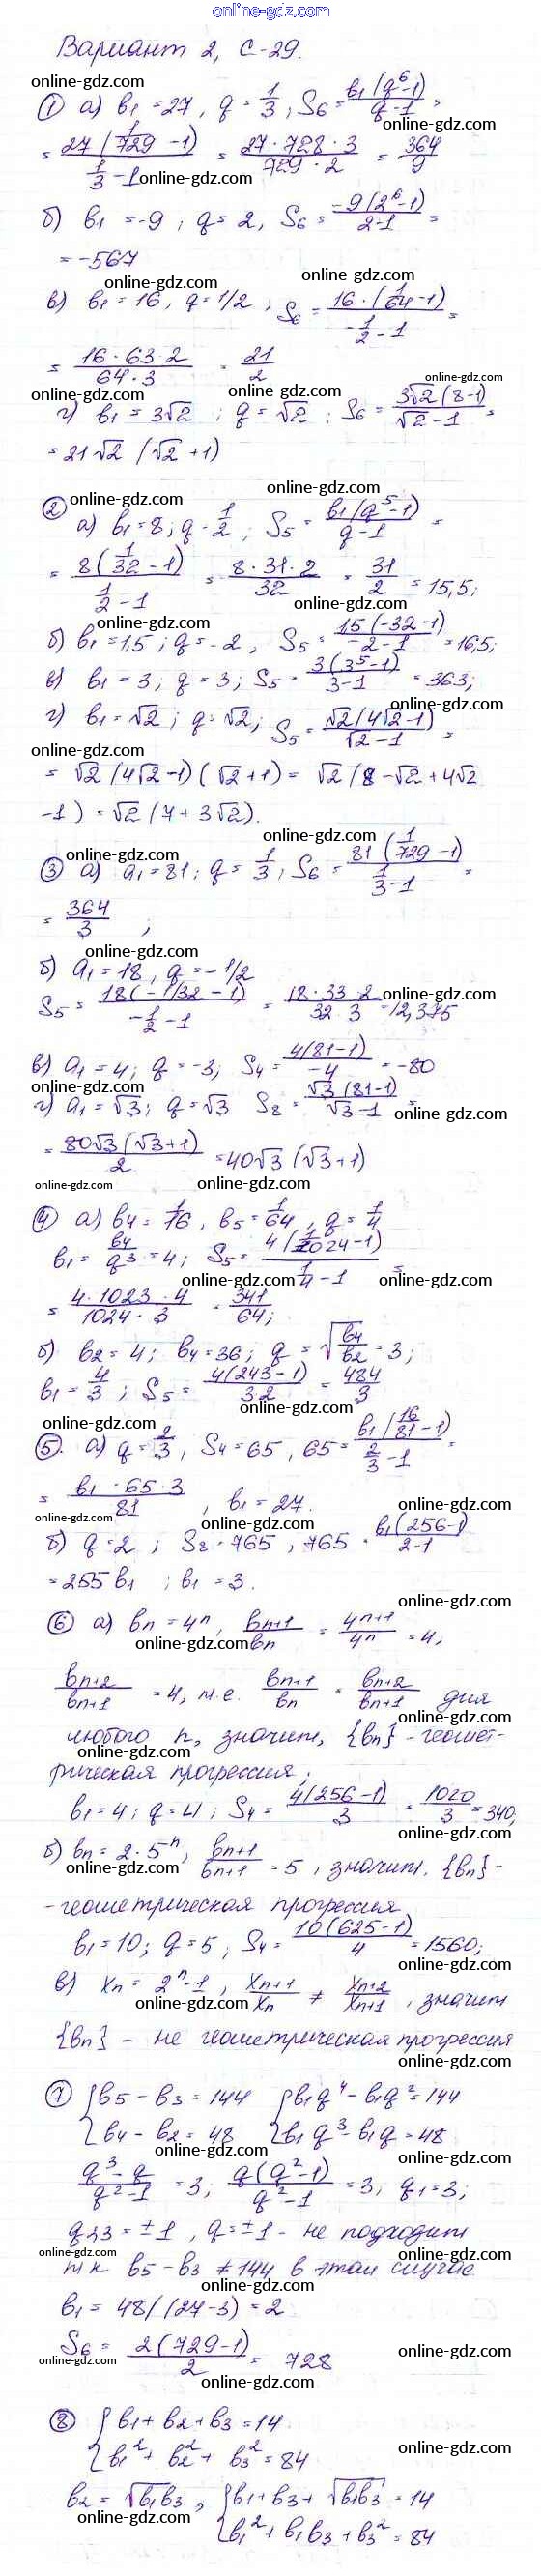 online-gdz.com
Вариант 2, С-29.
online-gdz.com
① а) b₁ = 27, q = 1/3; S₆ = b₁(q⁶-1)/(q-1) =
= 27(1/729 - 1)/(1/3 - 1) = 27·728·3/(729·2) = 364/9
online-gdz.com
б) b₁ = -9; q = 2, S₆ = -9(2⁶-1)/(2-1) =
= -567
online-gdz.com
online-gdz.com
в) b₁ = 16, q = 1/2; S₆ = 16·(1/64 - 1)/(-1/2 - 1) =
= 16·63·2/(64·3) = 21/2
online-gdz.com
online-gdz.com
online-gdz.com
г) b₁ = 3√2; q = √2; S₆ = 3√2(8-1)/(√2-1) =
= 21√2(√2+1)
online-gdz.com
online-gdz.com
② а) b₁ = 8; q - 1/2; S₅ = b₁(q⁵-1)/(q-1) =
= 8(1/32 - 1)/(1/2 - 1) = 8·31·2/32 = 31/2 = 15,5;
online-gdz.com
online-gdz.com
б) b₁ = 1,5; q = -2, S₅ = 15(-32-1)/(-2-1) = 16,5;
в) b₁ = 3; q = 3; S₅ = 3(3⁵-1)/(3-1) = 363;
online-gdz.com
г) b₁ = √2; q = √2; S₅ = √2(4√2-1)/(√2-1) =
online-gdz.com
= √2(4√2-1)(√2+1) = √2(8-√2+4√2
-1) = √2(7+3√2).
online-gdz.com
online-gdz.com
③ а) a₁ = 81; q = 1/3; S₆ = 81(1/729 - 1)/(1/3 - 1) =
= 364/3;
online-gdz.com
б) a₁ = 18, q = -1/2
S₅ = 18(-1/32 - 1)/(-1/2 - 1) = 18·33·2/(32·3) = 12,375
online-gdz.com
в) a₁ = 4; q = -3; S₄ = 4(81-1)/-4 = -80
online-gdz.com
г) a₁ = √3; q = √3 S₈ = √3(81-1)/(√3-1) =
online-gdz.com
= 80√3(√3+1)/2 = 40√3(√3+1)
online-gdz.com
online-gdz.com
④ а) b₄ = 1/16, b₅ = 1/64, q = 1/4
b₁ = b₄/q³ = 4; S₅ = 4(1/1024 - 1)/(1/4 - 1) =
online-gdz.com
online-gdz.com
= 4·1023·4/(1024·3) = 341/64;
б) b₂ = 4; b₄ = 36; q = √(b₄/b₂) = 3;
b₁ = 4/3; S₅ = 4(243-1)/(3·2) = 484/3
online-gdz.com
online-gdz.com
⑤. а) q = 2/3, S₄ = 65, 65 = b₁(16/81 - 1)/(2/3 - 1) =
= b₁·65·3/81, b₁ = 27.
online-gdz.com
online-gdz.com
online-gdz.com
б) q = 2; S₈ = 765, 765 = b₁(256-1)/(2-1)
= 255b₁; b₁ = 3.
online-gdz.com
⑥ а) bₙ = 4ⁿ, bₙ₊₁/bₙ = 4ⁿ⁺¹/4ⁿ = 4,
online-gdz.com
online-gdz.com
bₙ₊₂/bₙ₊₁ = 4, т.е. bₙ₊₁/bₙ = bₙ₊₂/bₙ₊₁ для
online-gdz.com
любого n, значит, {bₙ} - геомет-
online-gdz.com
рическая прогрессия;
b₁ = 4; q = 4; S₄ = 4(256-1)/3 = 1020/3 = 340;
online-gdz.com
б) bₙ = 2·5ⁿ, bₙ₊₁/bₙ₊₁ = 5, значит, {bₙ} -
online-gdz.com
- геометрическая прогрессия
b₁ = 10; q = 5; S₄ = 10(625-1)/4 = 1560;
online-gdz.com
в) xₙ = 2ⁿ-1, xₙ₊₁/xₙ ≠ xₙ₊₂/xₙ₊₁, значит
online-gdz.com
{bₙ} - не геометрическая прогрессия
online-gdz.com
⑦ {b₅ - b₃ = 144 {b₁q⁴ - b₁q² = 144
{b₄ - b₂ = 48 {b₁q³ - b₁q = 48
online-gdz.com
online-gdz.com
(q³-q)/(q²-1) = 3; q(q²-1)/(q²-1) = 3, q₁ = 3;
q₂,₃ = ±1, q = ±1 - не подходит
online-gdz.com
online-gdz.com
т.к. b₅ - b₃ ≠ 144 в этом случае
online-gdz.com
b₁ = 48/(27-3) = 2
S₆ = 2(729-1)/2 = 728
online-gdz.com
online-gdz.com
online-gdz.com
⑧ {b₁ + b₂ + b₃ = 14
{b₁² + b₂² + b₃² = 84
online-gdz.com
b₂ = √b₁b₃, {b₁ + b₃ + √b₁b₃ = 14
{b₁² + b₁b₃ + b₃² = 84
online-gdz.com
online-gdz.com